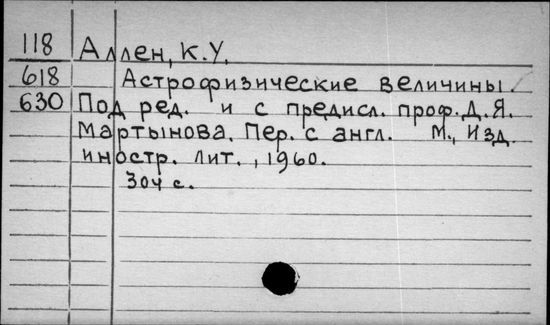 118 Аллен, К.У.
618 Астрофизические величины.
630 Под ред. и с предисл. проф. Д.Я.
Мартынова. Пер. с англ. М., Изд.
иностр. лит., 1960.
304 с.